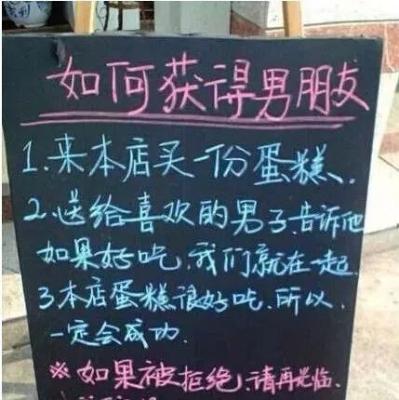 如何获得男朋友
1.来本店买一份蛋糕.
2.送给喜欢的男子.告诉他
如果好吃.我们就在一起.
3.本店蛋糕很好吃.所以.
一定会成功.
※如果被拒绝.请再光临.